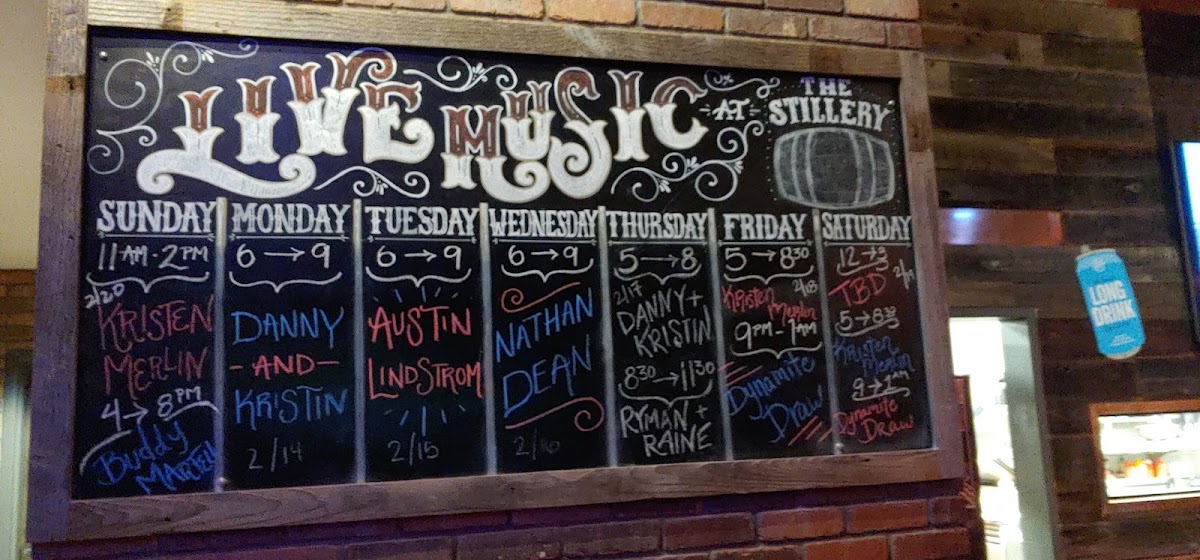 LIVE MUSIC AT THE
STILLERY
SUNDAY
11AM-2PM
2/20
KRISTEN
MERLIN
4→8PM
Buddy
MARTELL
MONDAY
6→9
DANNY
-AND-
KRISTIN
2/14
TUESDAY
6→9
AUSTIN
LINDSTROM
2/15
WEDNESDAY
6→9
NATHAN
DEAN
2/16
THURSDAY
5→8
2/17
DANNY+
KRISTIN
8:30→11:30
RYMAN+
RAINE
FRIDAY
5→8:30
2/18
Kristen
Merlin
9PM-1AM
Dynamite
Draw
SATURDAY
12→3
2/19
TBD
5→8:30
Kristen
Merlin
9→1AM
Dynamite
Draw
LONG
DRINK